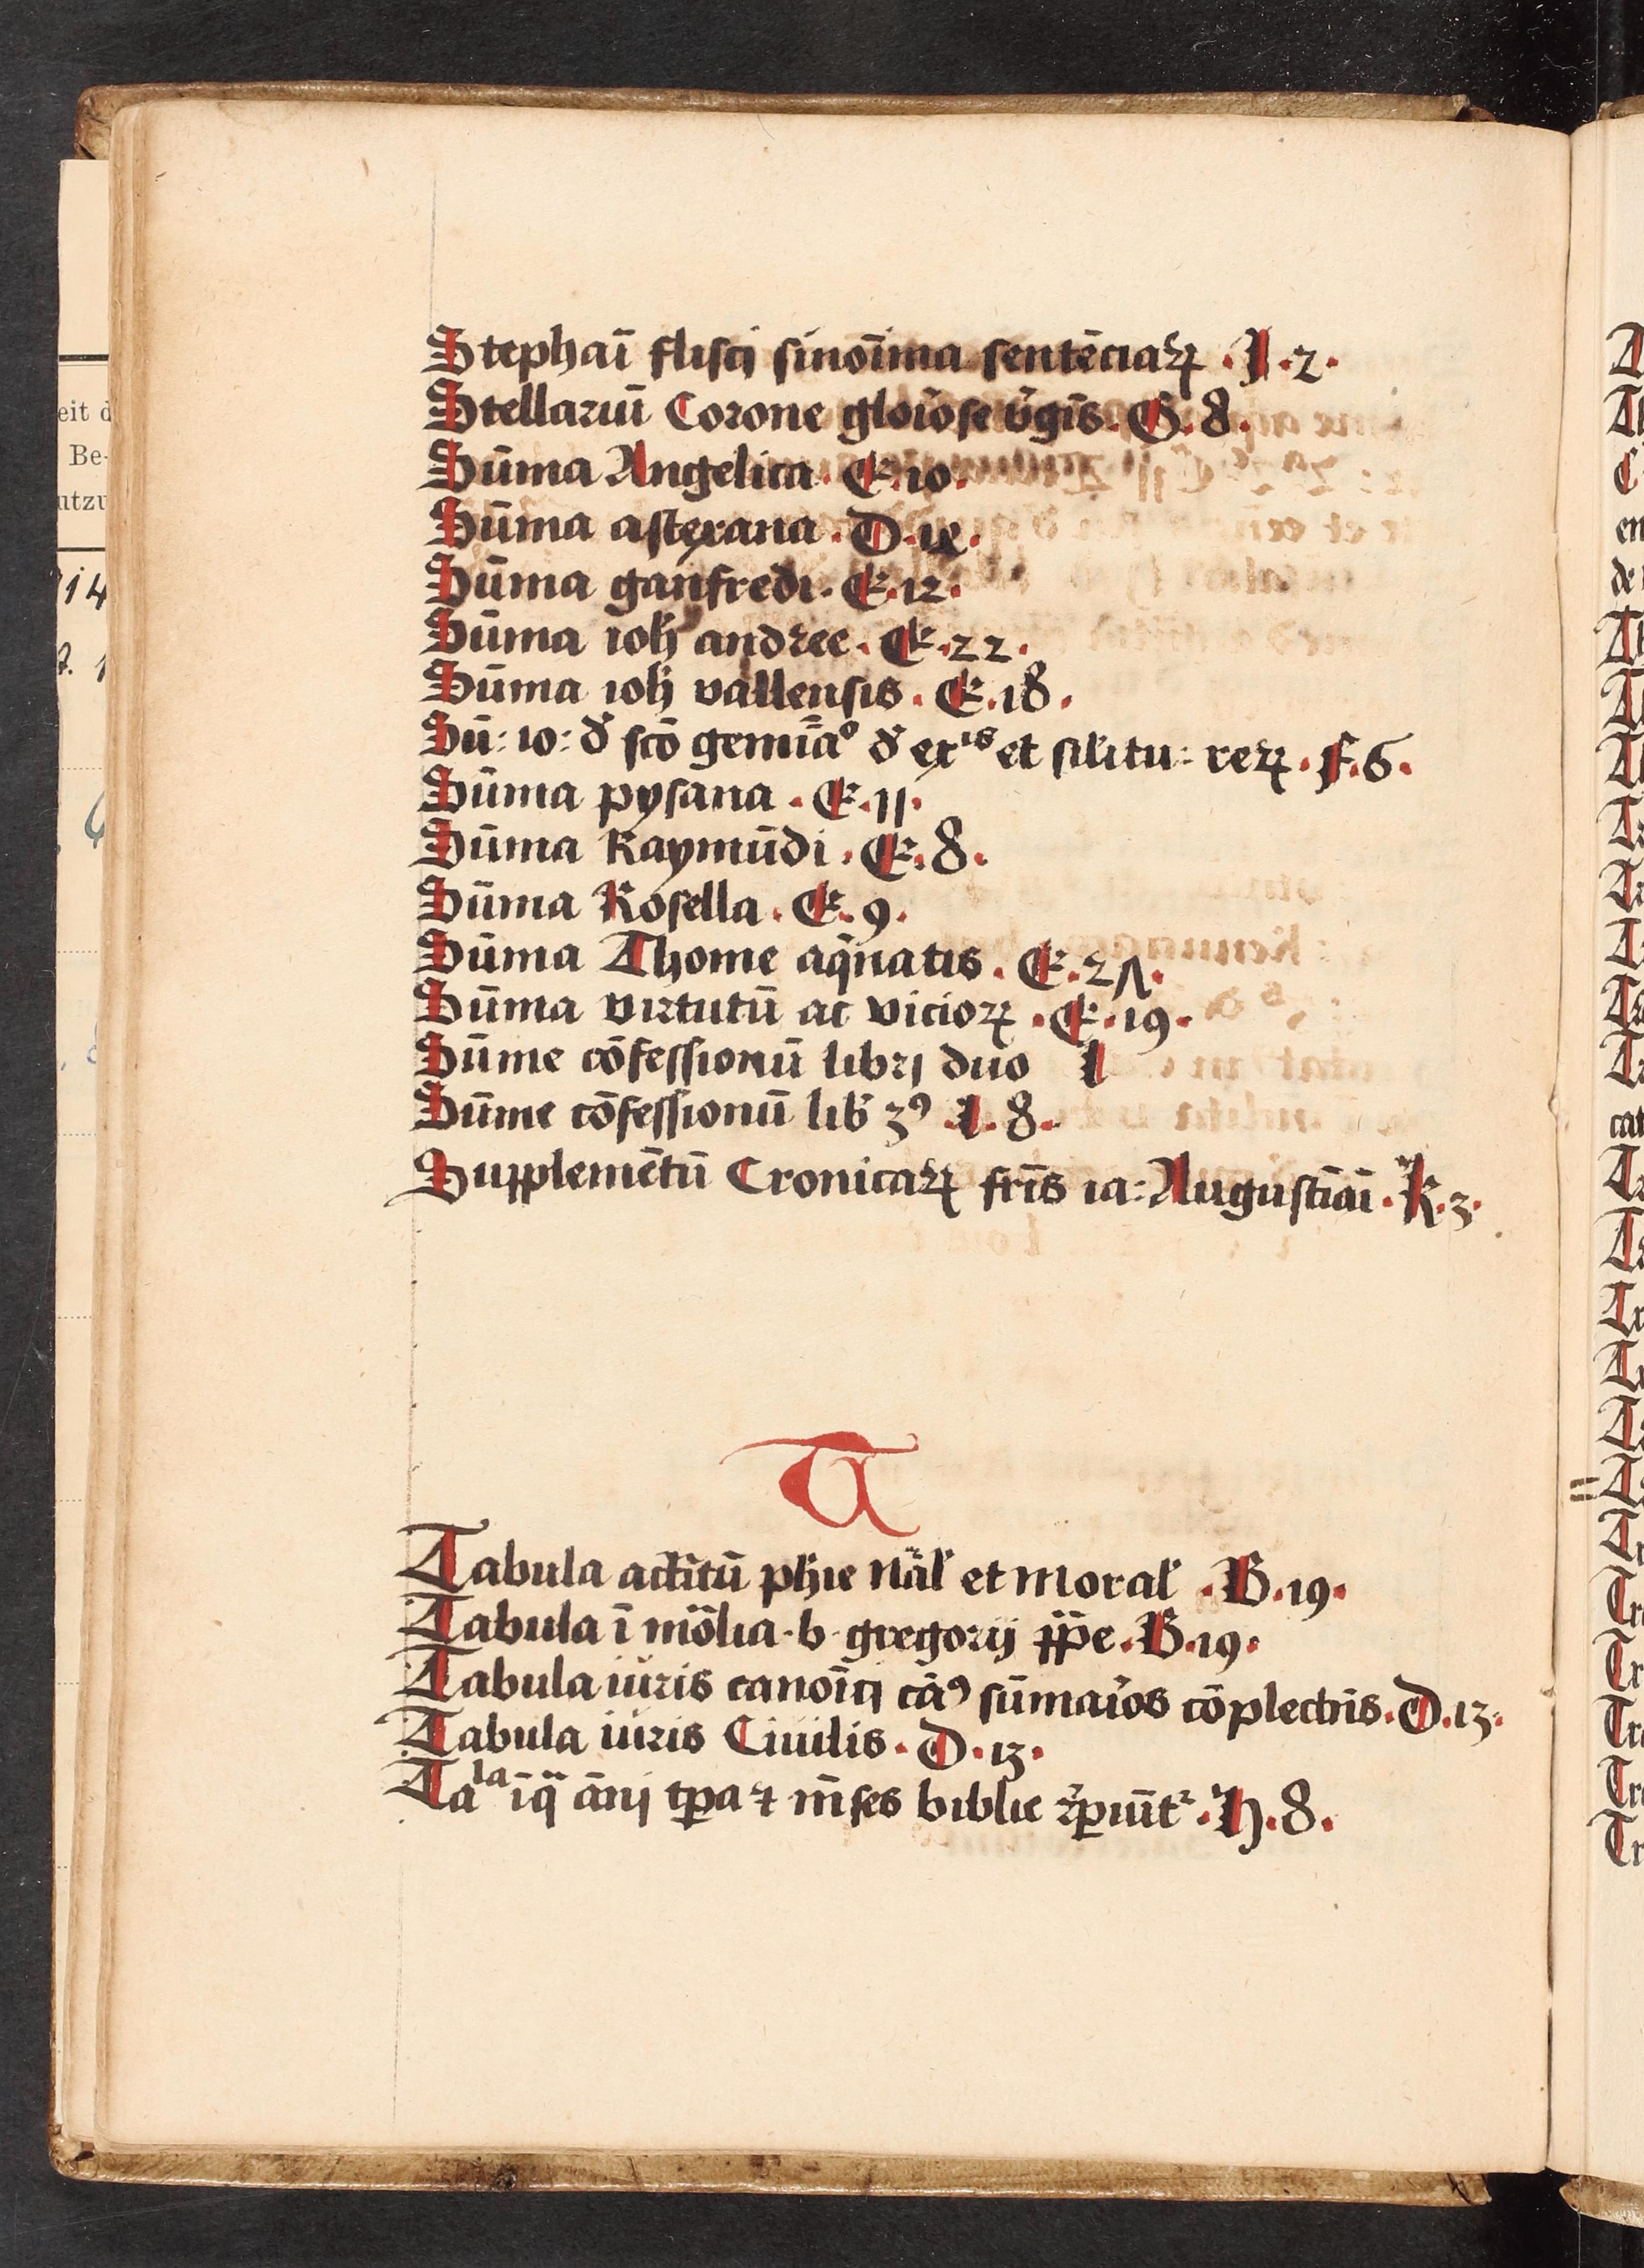 Stephaī flisci sinoīma sentēciaꝝ . I . 2 .
Stellariū Corone glo͛iose v͛gīs . G . 8 .
Sūma Angelica . E . 10 .
Sūma astexana . D .
Sūma ganfredi . E . 12 .
Sūma ioh̄ andree . E . 22 .
Sūma ioh̄ vallensis . E . 18 .
Sū: io: đ scō gemīaº đ exⁱˢ et silitu: reꝝ . F . 6 .
Sūma pysana . E . 11 .
Sūma Raymūdi . E . 8 .
Sūma Rosella . E . 9 .
Sūma Thome aq̄natis . E . 27 .
Sūma virtutū ac vicioꝝ . E . 19 .
Sūme cōfessionū libri duo I
Sūme cōfessionū lib 3ꝰ . I . 8 .
Supplemētū Cronicaꝝ fr̄is ia: Augustīāi . K . 3 .
T
Tabula phīe nāl et moral . B . 19 .
Tabula ī mōlia . b . gregorij ꝑꝑe . B . 19 .
Tabula iuris canoīci cāꝰ sūma͛ios cōplectēs . D . 13 .
Tabula iuris Ciuilis . D . 13 .
Taˡᵃ īq̄ ānj tꝑa ⁊ m̄ses biblie . H . 8 .
eit d
Be-
utzu
14
en
de
cat